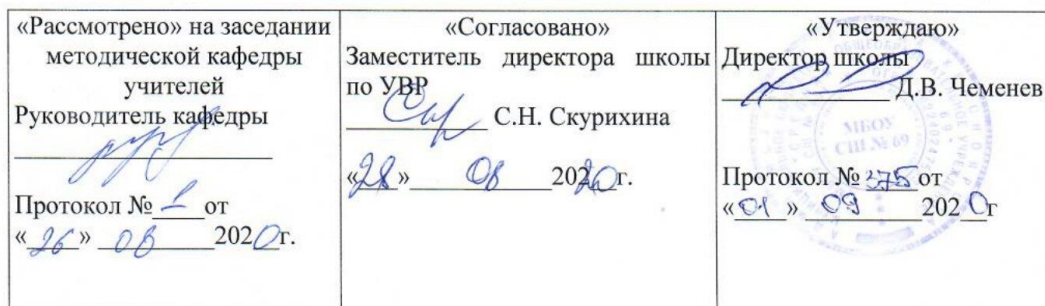 «Рассмотрено» на заседании
методической кафедры
учителей
Руководитель кафедры
Протокол № 1 от
«26» 08 2020г.
«Согласовано»
Заместитель директора школы
по УВР
С.Н. Скурихина
«28» 08 2020г.
«Утверждаю»
Директор школы
Д.В. Чеменев
МБОУ
СШ № 69
Протокол № 275 от
«01» 09 2020г